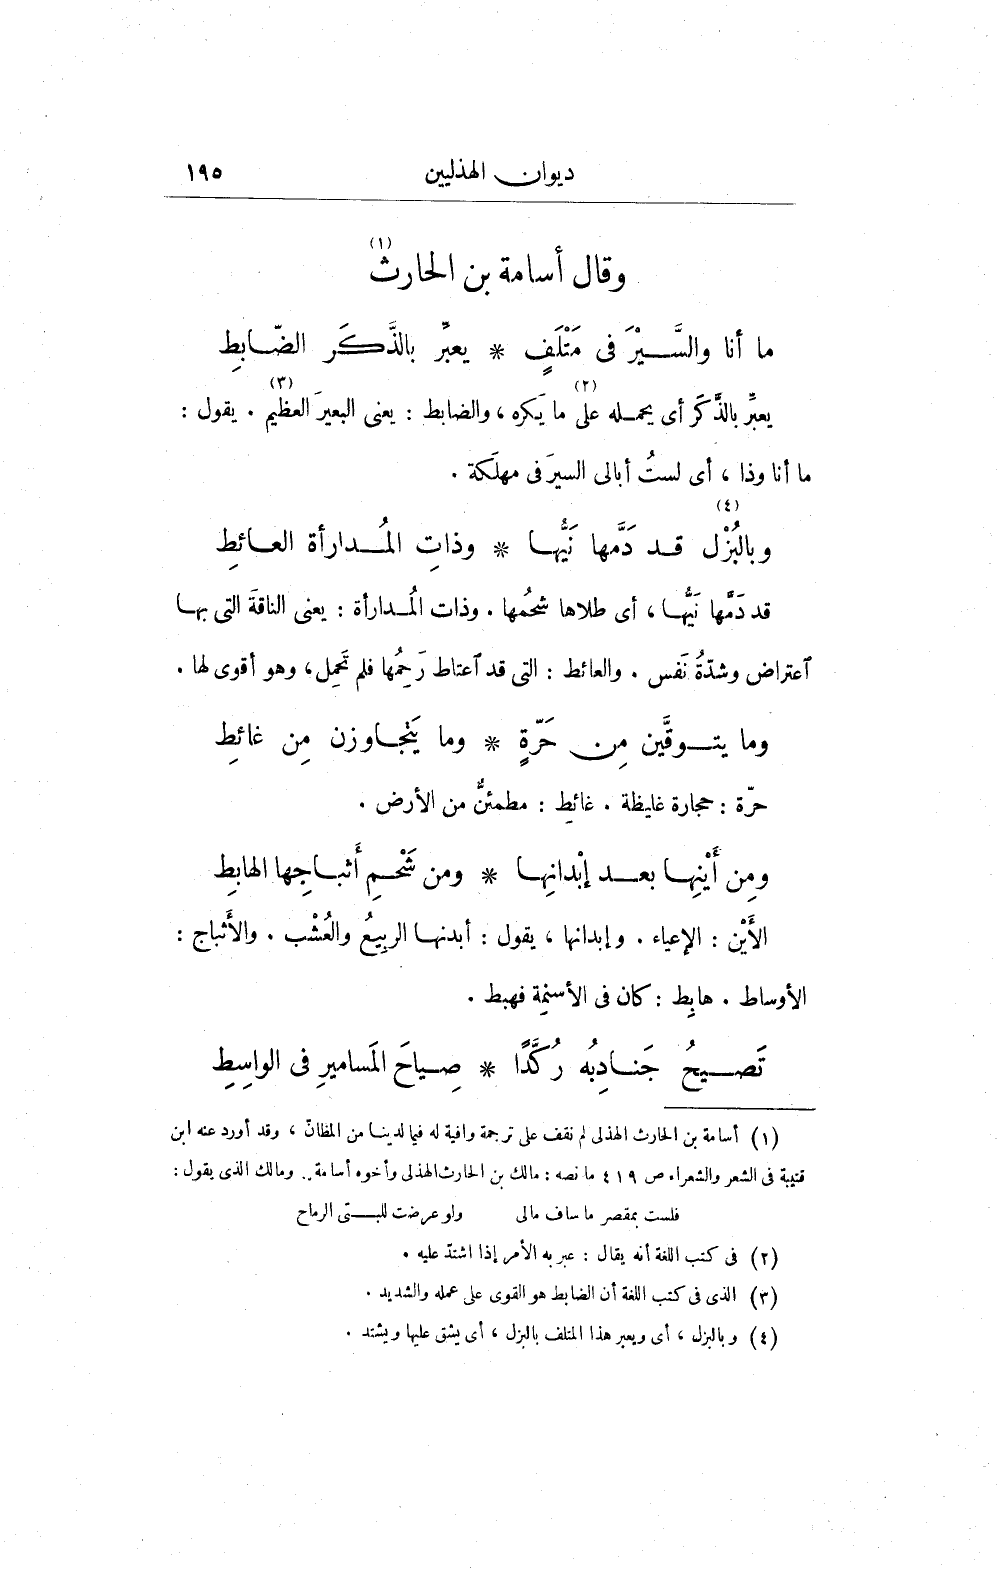 ديوان الهذليين ١٩٥
وقال أسامة بن الحارث (١)
ما أنا والسَّيْرَ فى مَتْلَفٍ * يعبِّر بالذَّكَر الضّابِطِ
يعبِّر بالذَّكَر أى يحمله على (٢) ما يَكره ، والضابط : يعنى البعيرَ العظيم (٣) . يقول :
ما أنا وذا ، أى لستُ أبالى السيرَ فى مهلَكة .
وبالبُزْل (٤) قد دَمَّها نَيُّها * وذاتِ المُدارأة العائطِ
قد دَمَّها نَيُّها ، أى طلاها شحُمها . وذات المُدارأة : يعنى الناقةَ التى بها
ٱعتراض وشدّةُ نَفس . والعائط : التى قد ٱعتاط رَحِمُها فلم تَحمِل ، وهو أقوى لها .
وما يتوقَّين مِن حَرّةٍ * وما يَتجاوزن مِن غائطِ
حرّة : حجارة غليظة . غائط : مطمئنٌّ من الأرض .
ومِن أَيْنِها بعد إبْدانِها * ومن شَحْمِ أَثباجِها الهابِطِ
الأَيْن : الإعياء . وإبدانها ، يقول : أبدنها الربيعُ والعُشْب . والأَثباج :
الأوساط . هابِط : كان فى الأسنِمة فهبط .
تَصيحُ جَنادِبُه رُكَّدًا * صِياحَ المَسامير فى الواسِطِ
(١) أسامة بن الحارث الهذلى لم نقف على ترجمة وافية له فيما لدينا من المظانّ ، وقد أورد عنه ابن
قتيبة فى الشعر والشعراء ص ٤١٩ ما نصه : مالك بن الحارث الهذلى وأخوه أسامة .. ومالك الذى يقول :
فلست بمقصر ما ساف مالى ولو عرضت للبتى الرماح
(٢) فى كتب اللغة أنه يقال : عبر به الأمر إذا اشتدّ عليه .
(٣) الذى فى كتب اللغة أن الضابط هو القوى على عمله والشديد .
(٤) وبالبزل ، أى ويعبر هذا المتلف بالبزل ، أى يشق عليها ويشتد .